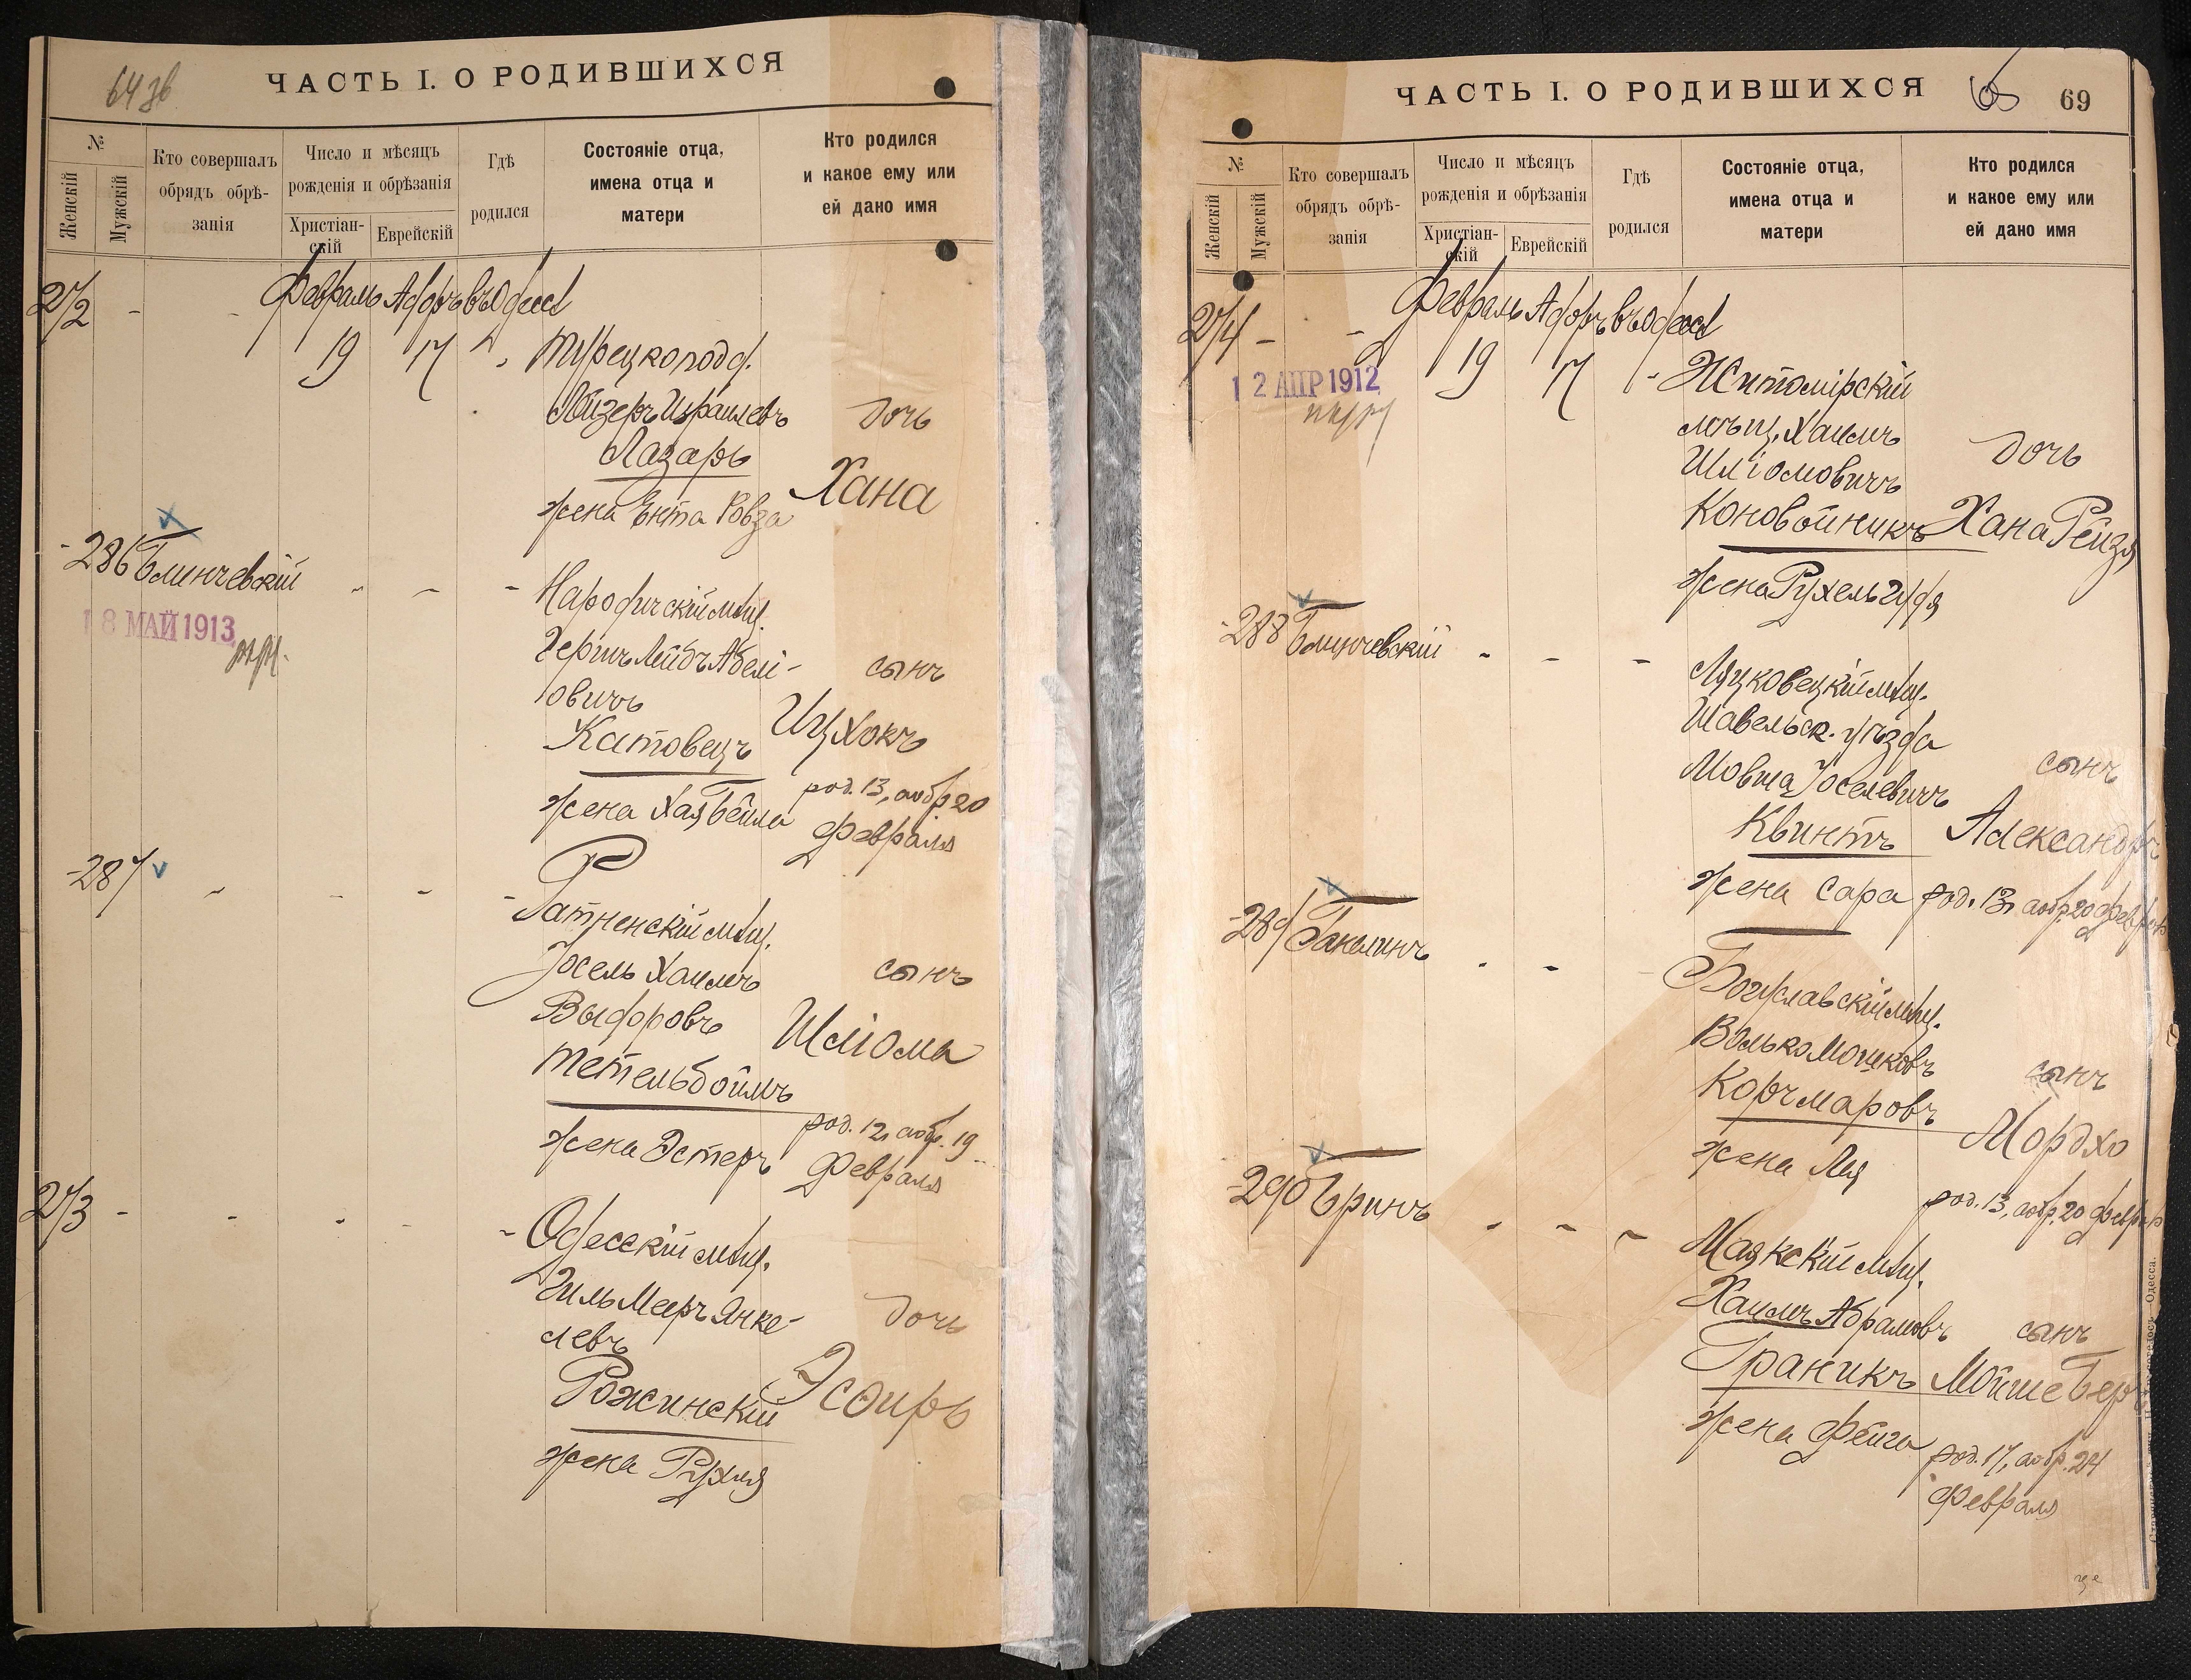 64 зв
ЧАСТЬ I. О РОДИВШИХСЯ
№
Женскій
Мужскій
Кто совершалъ
обрядъ обрѣ-
занія
Число и мѣсяцъ
рожденія и обрѣзанія
Христіан-
скій
Еврейскій
Гдѣ
родился
Состояніе отца,
имена отца и
матери
Кто родился
и какое ему или
ей дано имя
272 - - Февраль Адоръ въ Одессѣ
19 17
Турецкоподд.
Лейзеръ Израилевъ
Лазарь
жена Ента Ровза
дочь
Хана
-286 Блинчевскій - - -
18 МАЙ 1913
Народичскій мѣщ.
Гершъ Лейбъ Абелі-
овичъ
Катовецъ
жена Хая Бейла
сынъ
Ицхокъ
род. 13, аобр 20
Февраля
-287 - - - -
Ратненскій мѣщ.
Іосель Хаимъ
Выдоровъ
Тетельбоймъ
жена Эстеръ
сынъ
Шліома
род. 12, аобр. 19
Февраля
273 - - - - -
Одесскій мѣщ.
Гиль Мееръ Янке-
левъ
Рожинскій
жена Рухля
дочь
Эсѳирь
ЧАСТЬ I. О РОДИВШИХСЯ
65
69
№
Женскій
Мужскій
Кто совершалъ
обрядъ обрѣ-
занія
Число и мѣсяцъ
рожденія и обрѣзанія
Христіан-
скій
Еврейскій
Гдѣ
родился
Состояніе отца,
имена отца и
матери
Кто родился
и какое ему или
ей дано имя
274 - - Февраль Адоръ въ Одессѣ
19 17
12 АПР 1912
Житомірскій
мѣщ. Хаимъ
Шліомовичъ
Коновойникъ
жена Рухель Гудя
дочь
Хана Рейзя
-288 Блинчевскій - - -
Ляцковецкій мѣщ.
Шавельск. уѣзда
Мовша Іоселевичъ
Квинтъ
жена Сара
сынъ
Александръ
род. 13, аобр 20 Февраля
-289 Ганелинъ - -
Богуславскій мѣщ.
Волько Мошковъ
Корчмаровъ
жена Лея
сынъ
Мордхо
род. 13, аобр. 20 Февраля
-290 Бринъ - - -
Маякскій мѣщ.
Хаимъ Абрамовъ
Граникъ
жена Фейга
сынъ
Мойше Беръ
род. 17, аобр. 24
Февраля